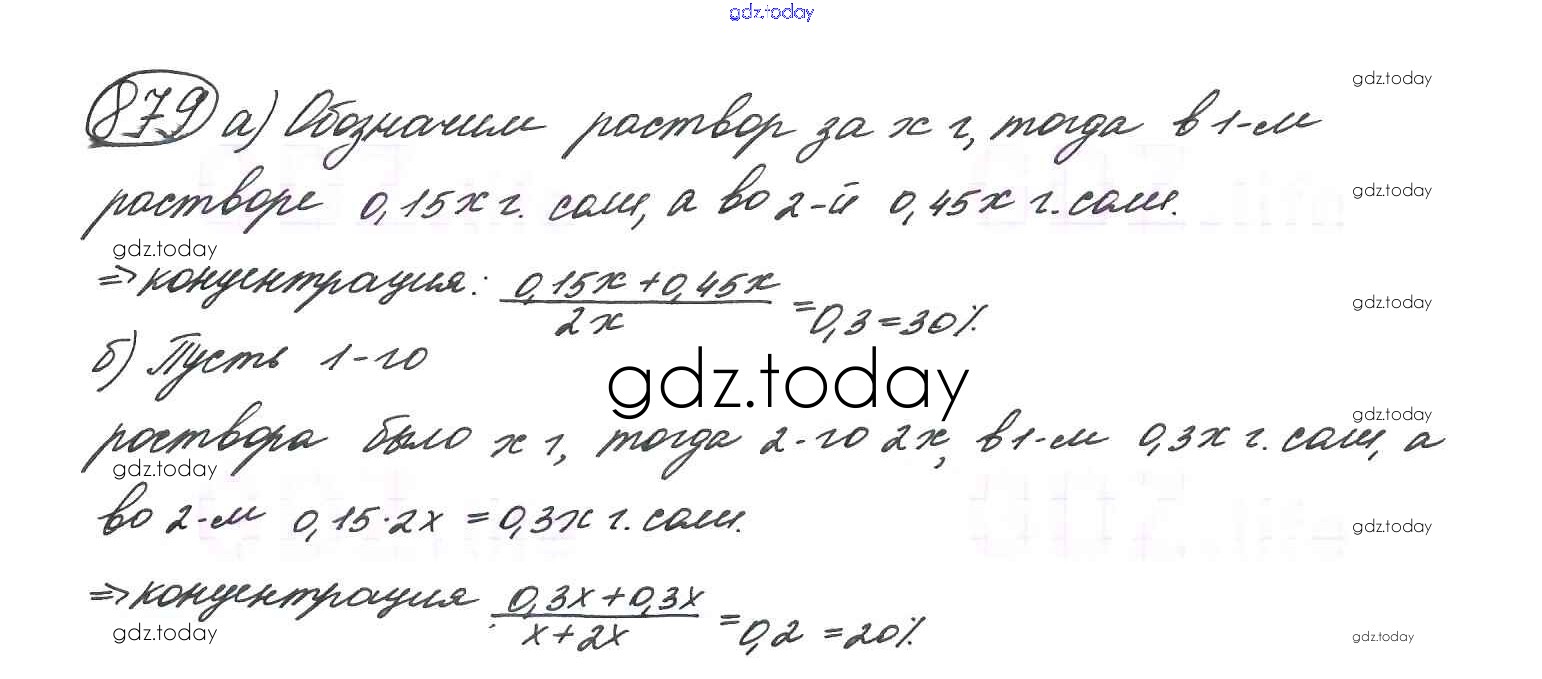 gdz.today
879 а) Обозначим раствор за x г, тогда в 1-м
gdz.today
растворе 0,15x г. соли, а во 2-й 0,45x г. соли.
gdz.today
gdz.today
=> концентрация: (0,15x + 0,45x)/2x = 0,3 = 30%
gdz.today
б) Пусть 1-го
gdz.today
gdz.today
раствора было x г, тогда 2-го 2x, в 1-м 0,3x г. соли, а
gdz.today
во 2-м 0,15·2x = 0,3x г. соли.
gdz.today
=> концентрация: (0,3x + 0,3x)/(x + 2x) = 0,2 = 20%
gdz.today
gdz.today